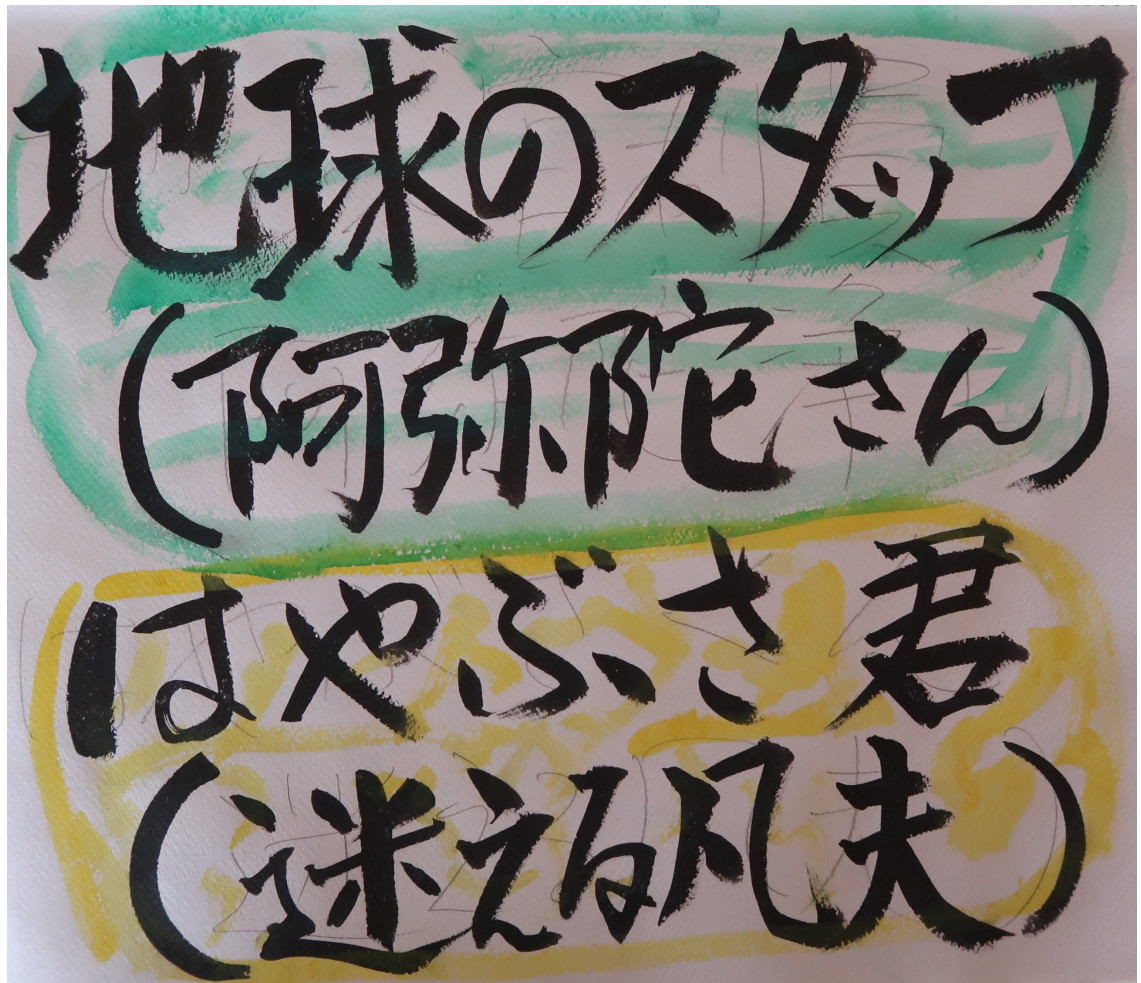 地球のスタッフ
(阿弥陀さん)
はやぶさ君
(迷える凡夫)